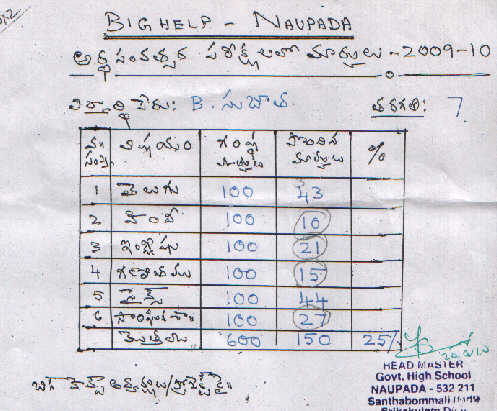 BIGHELP - NAUPADA
అర్థ సంవత్సర పరీక్షలలో మార్కులు - 2009-10
విద్యార్థి పేరు: B. సుజాత తరగతి: 7
వ. సంఖ్య విషయం గరిష్ఠ మార్కులు పొందిన మార్కులు %
1 తెలుగు 100 43
2 హిందీ 100 10
3 ఇంగ్లీషు 100 21
4 గణితము 100 15
5 సైన్స్ 100 44
6 సాంఘిక శా 100 27
మొత్తం 600 150 25%
HEAD MASTER
Govt. High School
NAUPADA - 532 211
Santhabommali